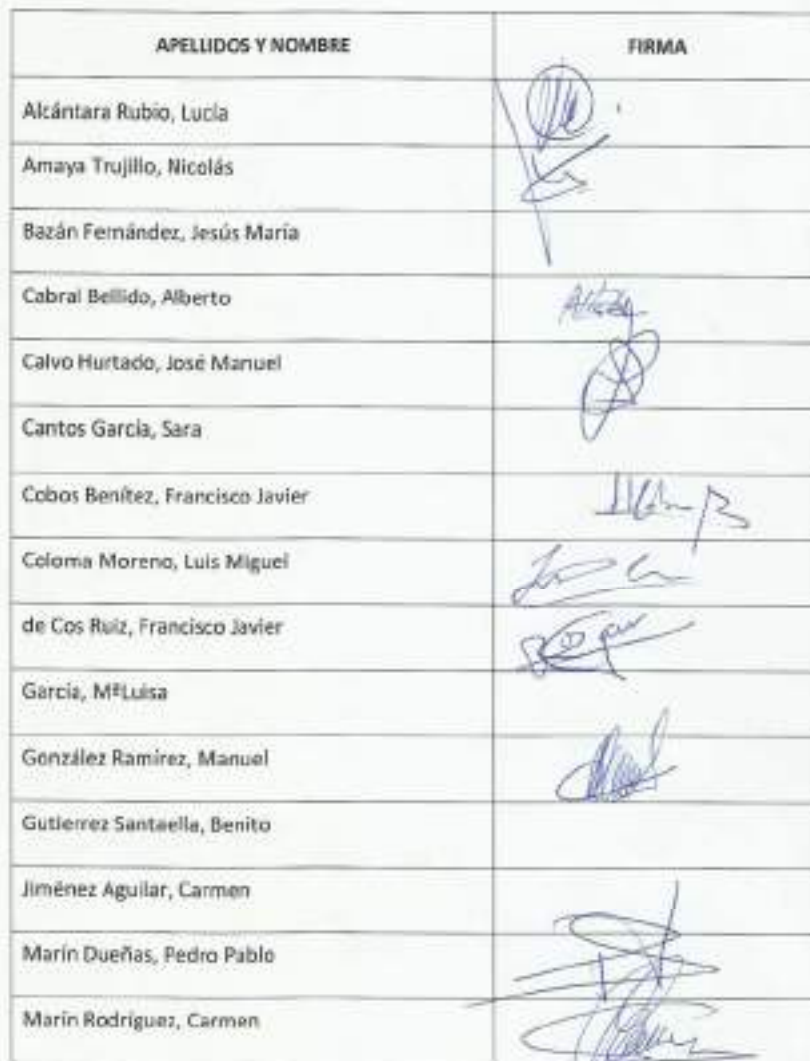 APELLIDOS Y NOMBRE FIRMA
Alcántara Rubio, Lucía
Amaya Trujillo, Nicolás
Bazán Fernández, Jesús María
Cabral Bellido, Alberto
Calvo Hurtado, José Manuel
Cantos García, Sara
Cobos Benítez, Francisco Javier
Coloma Moreno, Luis Miguel
de Cos Ruiz, Francisco Javier
García, MªLuisa
González Ramírez, Manuel
Gutierrez Santaella, Benito
Jiménez Aguilar, Carmen
Marín Dueñas, Pedro Pablo
Marín Rodríguez, Carmen